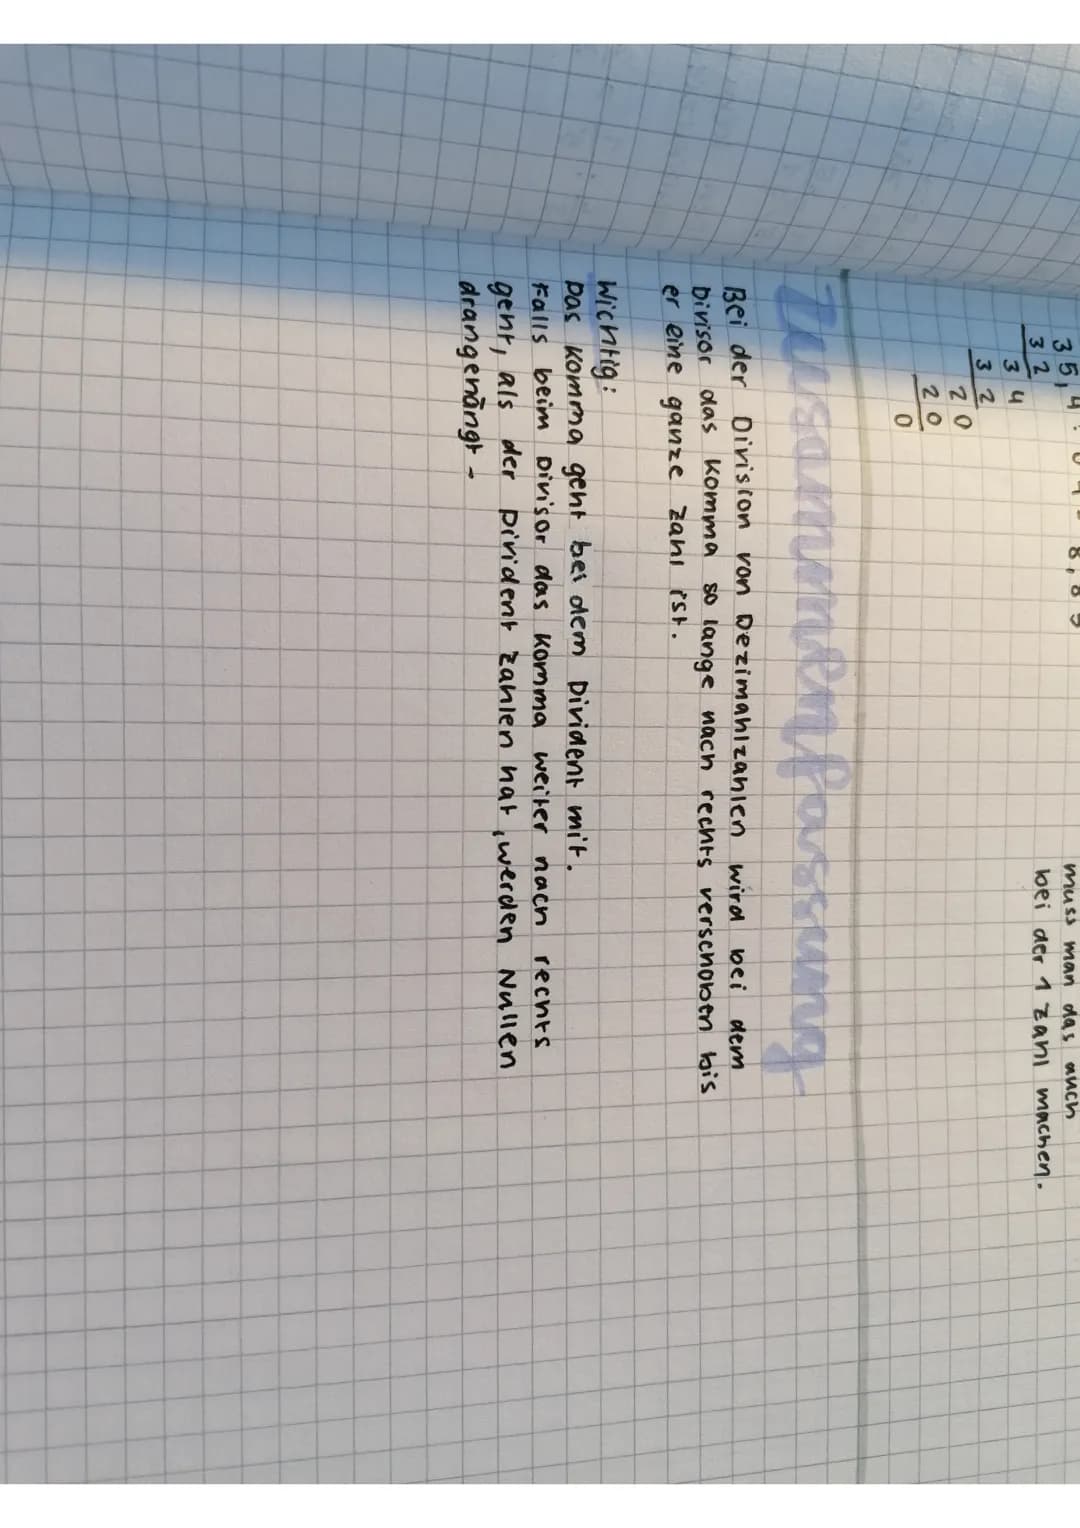 35,4:04=8,85
32
34
32
20
20
0
muss man das auch
bei der 1 zahl machen.
Zusammenfassung
Bei der Division von Dezimahlzahlen wird bei dem
Divisor das Komma so lange nach rechts verschoben bis
er eine ganze zahl ist.
Wichtig:
Das Komma geht bei dem Divident mit.
Falls beim Divisor das Komma weiter nach rechts
geht, als der Divident zahlen hat, werden Nullen
drangehängt.